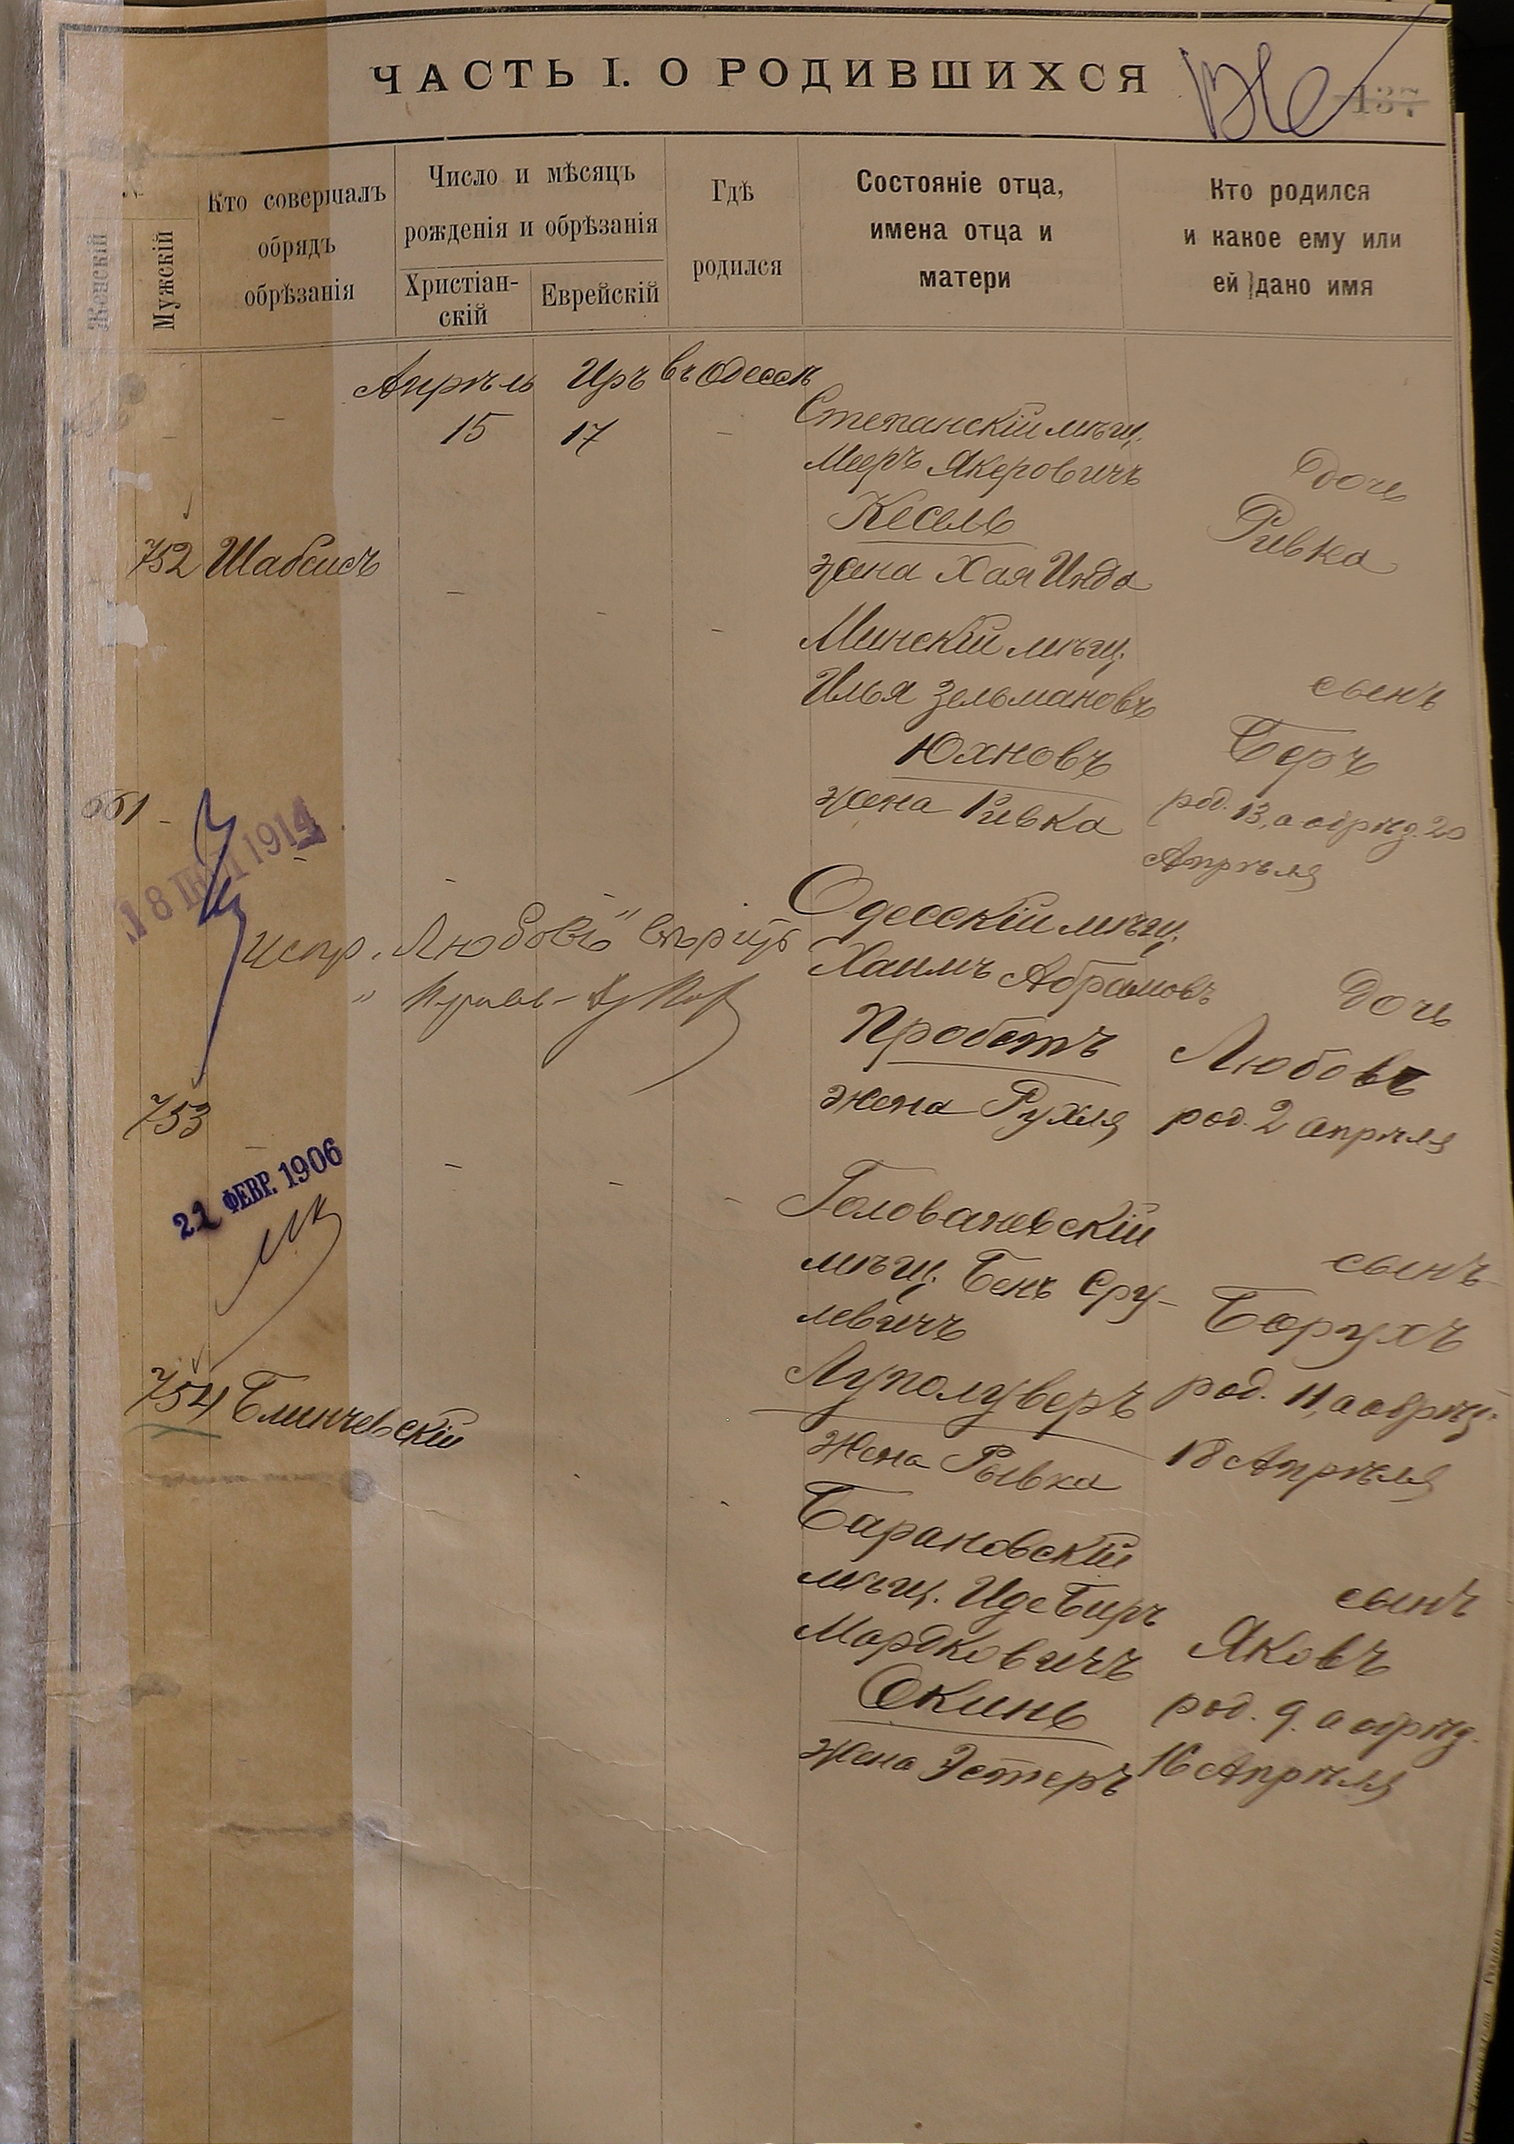 ЧАСТЬ I. О РОДИВШИХСЯ
137
Женскій
Мужскій
Кто совершалъ
обрядъ
обрѣзанія
Число и мѣсяцъ
рожденія и обрѣзанія
Христіан-
скій
Еврейскій
Гдѣ
родился
Состояніе отца,
имена отца и
матери
Кто родился
и какое ему или
ей дано имя
Апрѣль Иръ въ Одессѣ
15 17
Степанскій мѣщ.
Мееръ Якеровичъ
Кесель
жена Хая Инда
дочь
Ривка
752 Шабсисъ
Минскій мѣщ.
Илья Зельмановъ
Юхновъ
жена Ривка
сынъ
Беръ
род. 13, а обрѣз. 20
Апрѣля
661
18 1914
испр. "Любовь" вѣрить
Одесскій мѣщ.
Хаимъ Абрамовъ
Пробстъ
жена Рухля
дочь
Любовь
род. 2 апрѣля
753
22 ФЕВР. 1906
Голованевскій
мѣщ. Бенъ Сру-
левичъ
Луполуверъ
жена Рывка
сынъ
Борухъ
род. 11, а обрѣз.
18 Апрѣля
754 Блинчевскій
Барановскій
мѣщ. Иде Беръ
Мордковичъ
Окинь
жена Эстеръ
сынъ
Яковъ
род. 9. а обрѣз.
16 Апрѣля